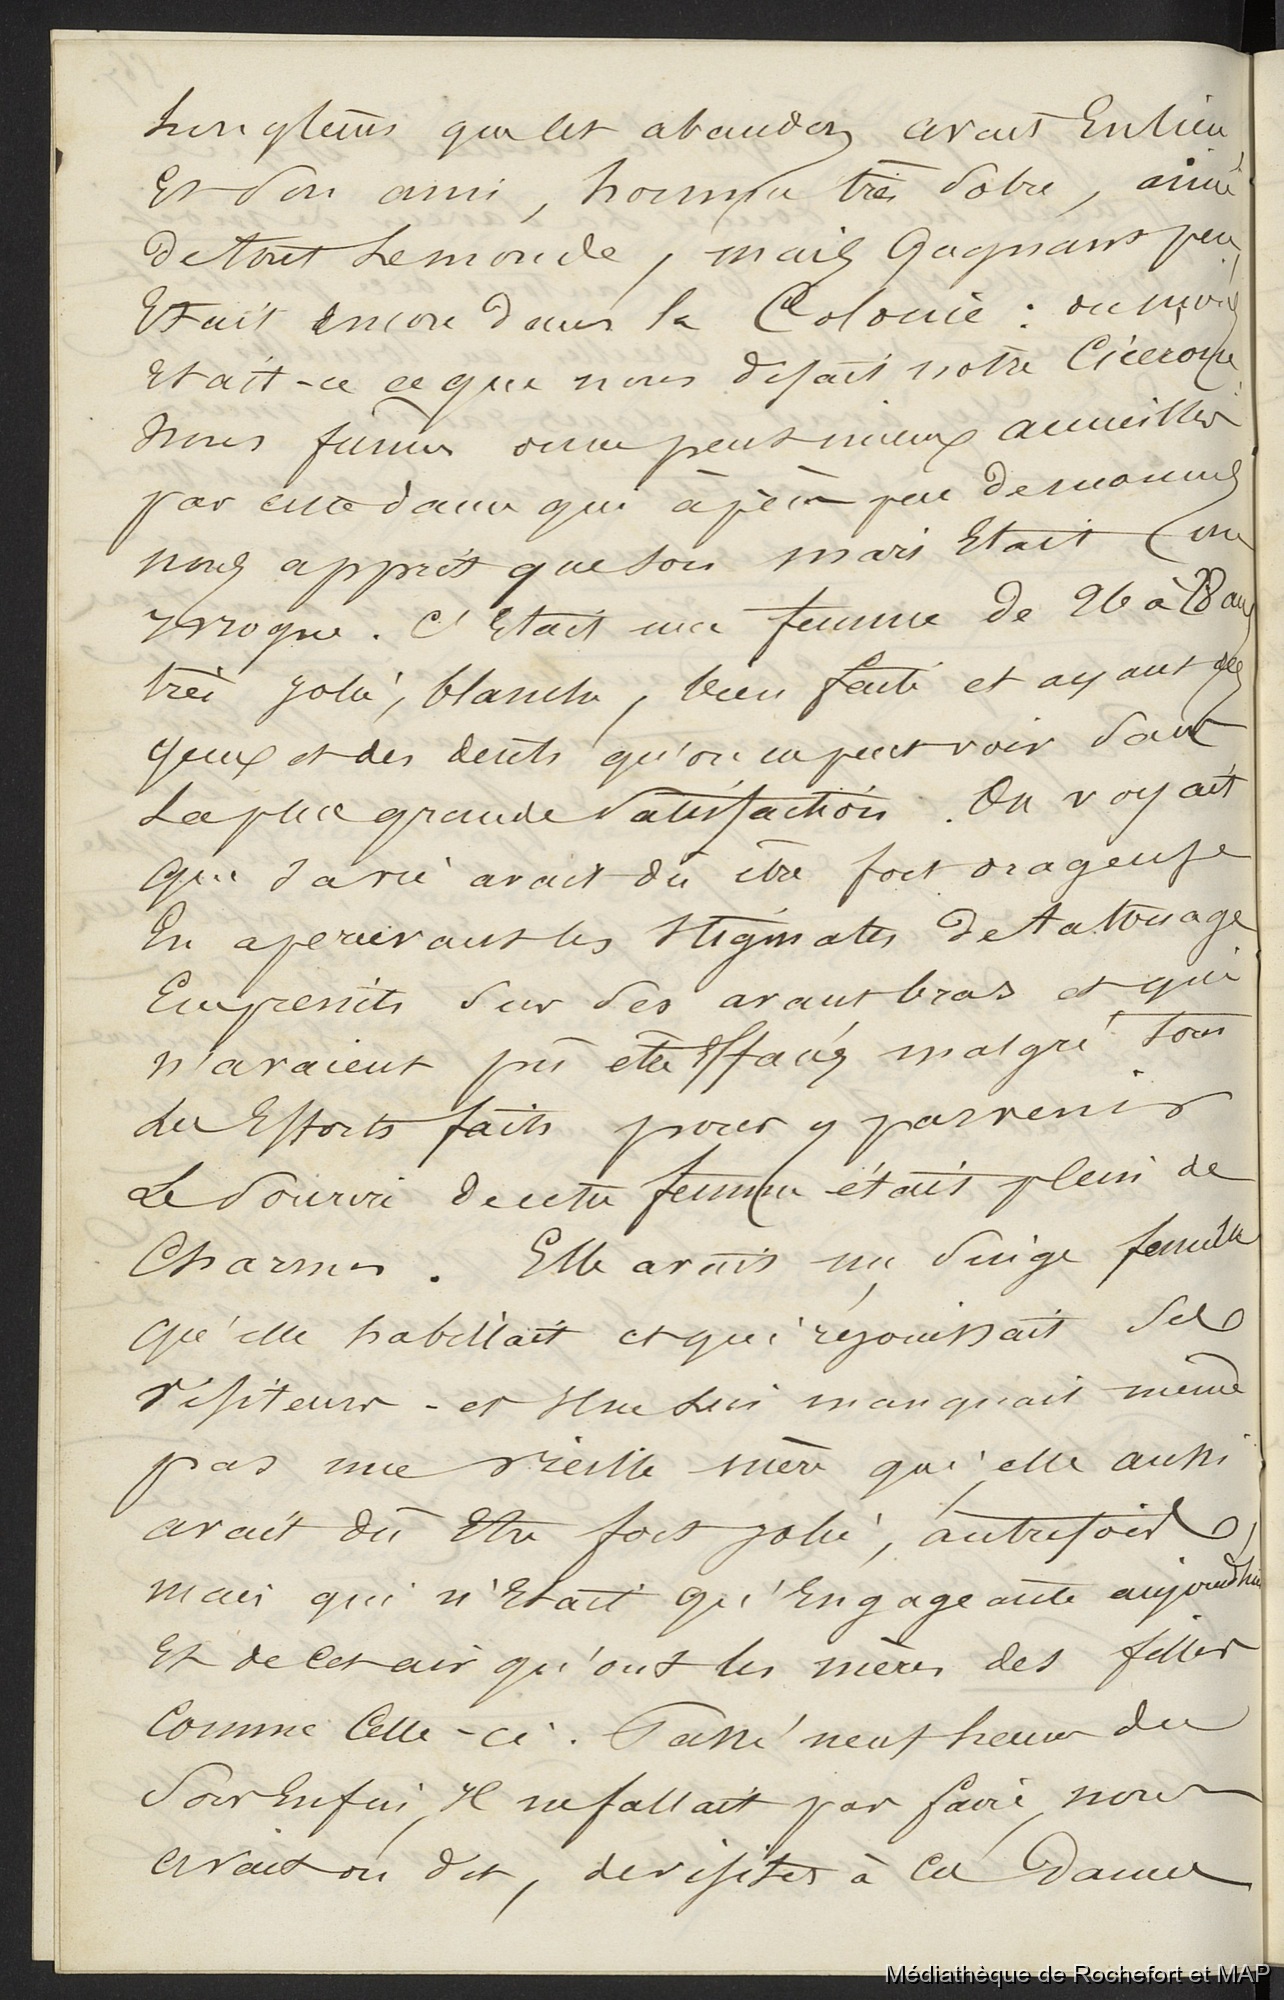 longtems que cet abandon avait Eu lieu
Et son ami, homme très sobre, aimé
de tout Le monde, mais Gagnant peu,
Etait encore dans la Colonie : du moins
Etait-ce ce que nous disait notre Cicérone.
Nous fumes on ne peut mieux accueillis
par cette dame qui à peine
nous apprit que son mari Etait un
yvrogne. C'Etait une femme de 26 à 28 ans
très jolie, blanche, bien faite et ayant des
yeux et des dents qu'on ne peut voir sans
La plus grande satisfaction. On voyait
que sa vie avait dû être fort orageuse
En apercevant les stigmates de tatouage
Empreints sur ses avant bras et qui
n'avaient pû etre Effacés malgré tous
les Efforts faits pour y parvenir
Le sourire de cette femme était plein de
Charmes. Elle avait un singe femelle
qu'elle habillait et qui réjouissait ses
visiteurs - et Il ne Lui manquait même
pas une vieille mère qui, elle aussi
avait dû Etre fort jolie, autrefois,
mais qui n'Etait qu'Engageante aujourd'hui
Et de cet air qu'ont les mères des filles
Comme Celle-ci. Passé neuf heures du
Soir Enfin, Il ne fallait pas faire, nous
avait on dit, de visites à ces Dames
Médiathèque de Rochefort et MAP